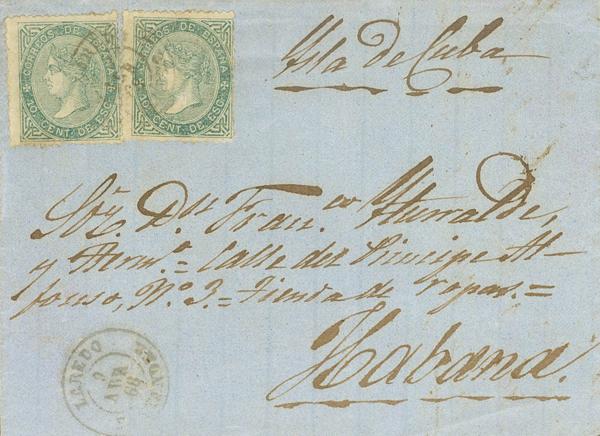 CORREOS DE ESPAÑA
10 CENT. DE ESC.
CORREOS DE ESPAÑA
10 CENT. DE ESC.
Ysla de Cuba
Sres. Dn. Fran.co Yturralde,
y Herm.o = Calle del Principe Al-
fonso, No. 3. = Tienda de ropas. =
Habana.
LAREDO
ABR